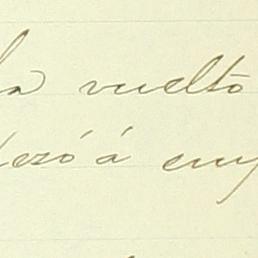 la vuelto
ezó á em